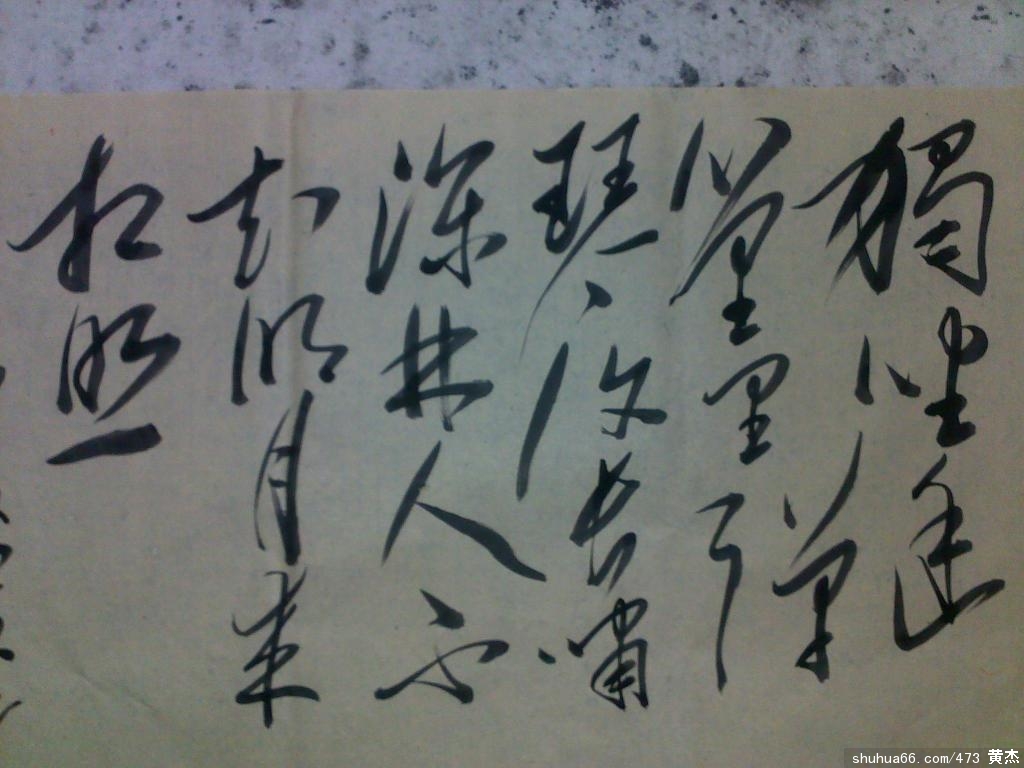 獨坐幽
篁里彈
琴復長嘯
深林人不
知明月来
相照
shuhua66.com/473 黄杰